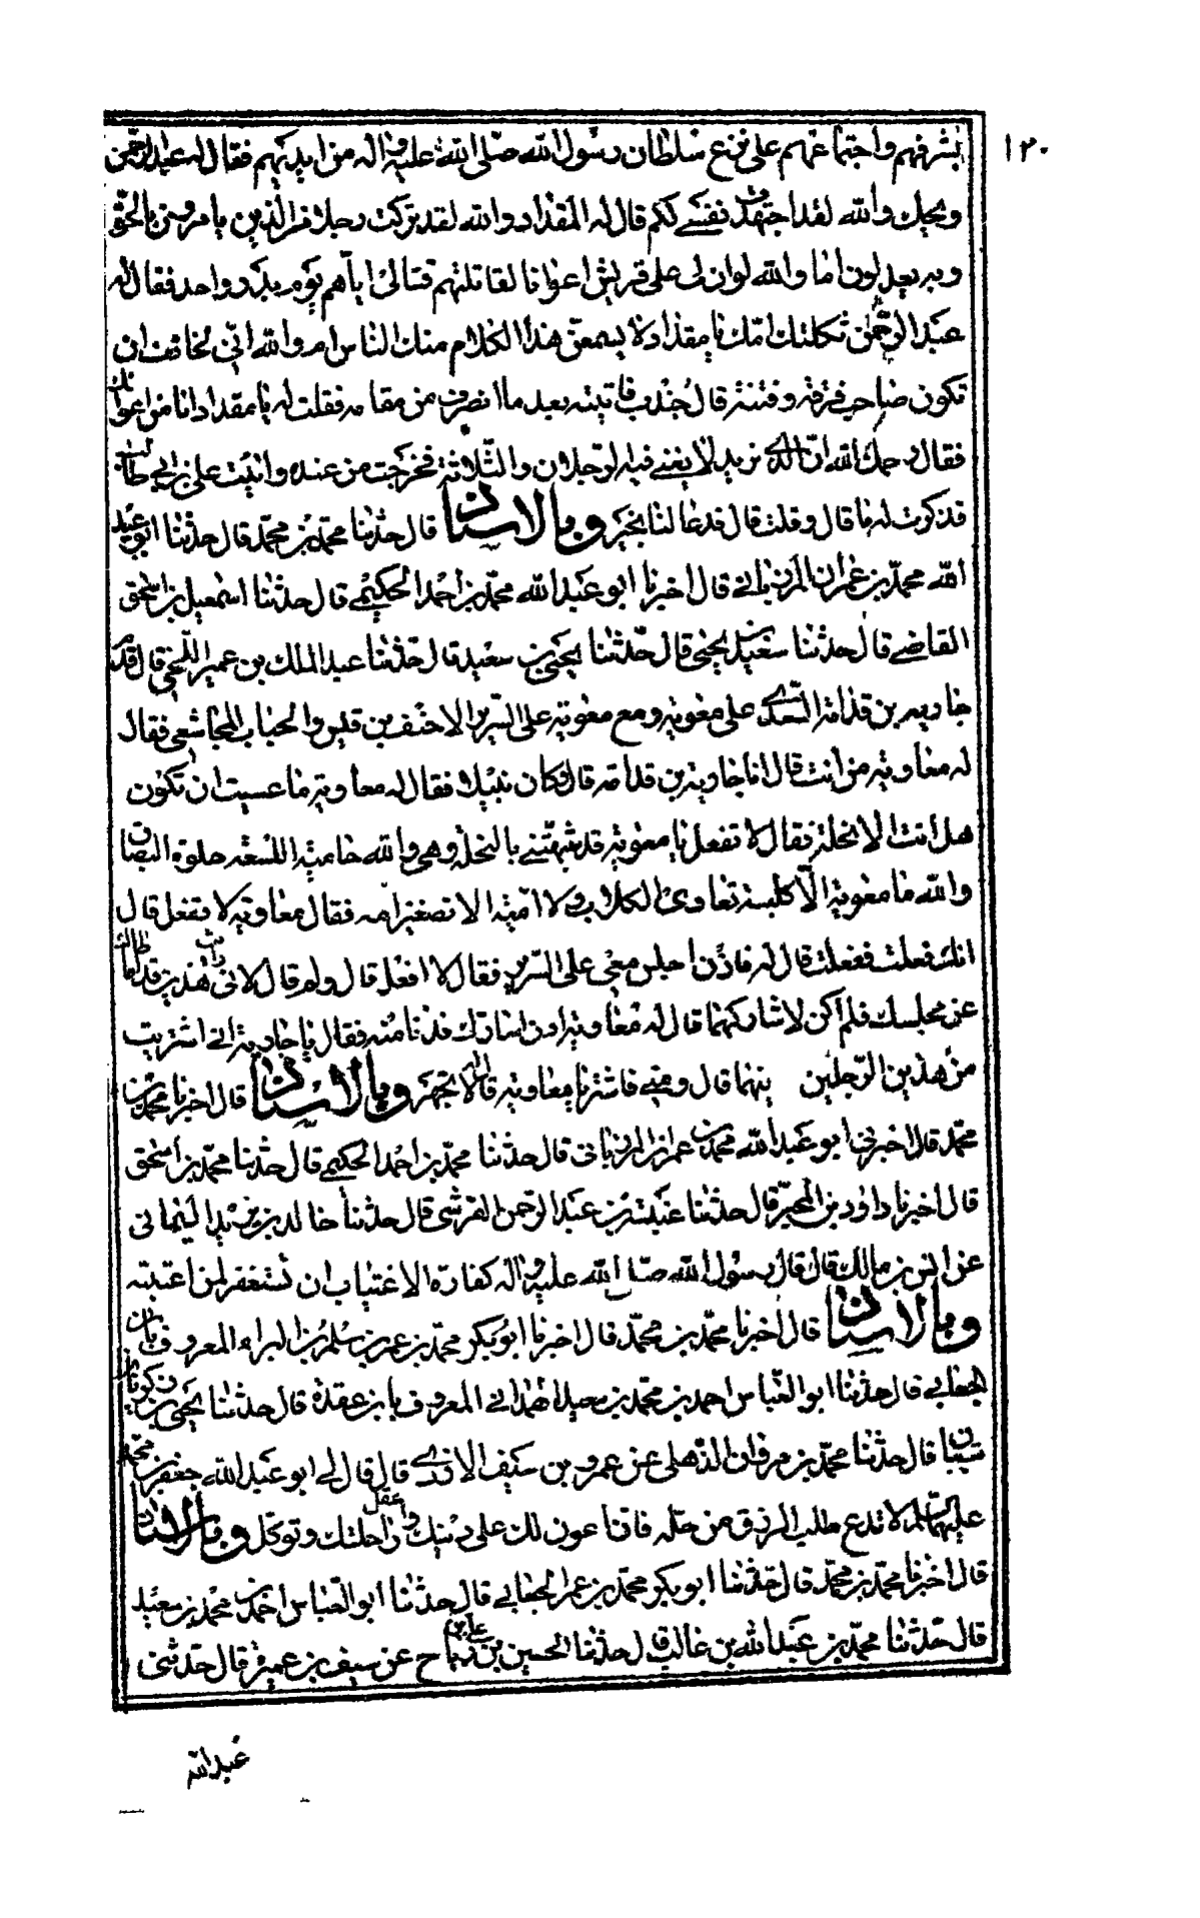 ١٢٠
بشرفهم واجتماعهم على نزع سلطان رسول الله صلى الله عليه واله من ايديهم فقال له عبد الرحمن
ويحك والله لقد اجتهدت نفسي لكم قال له المقداد والله لقد تركت رجلا من الذين يامرون بالحق
وبه يعدلون اما والله لو ان لى على قريش اعوانا لقاتلتهم قتالى اياهم يوم بدر واحد فقال له
عبد الرحمن ثكلتك امك يا مقداد لا يسمعن هذا الكلام منك الناس ام والله انى لخائف ان
تكون صاحب فرقة وفتنة قال جندب فاتيته بعد ما انصرف من مقامه فقلت له يا مقداد انا من اعوانك
فقال رحمك الله ان الذى نريد لا يغنى فيه الرجلان والثلاثة فخرجت من عنده واتيت على بن ابى طالب
فذكرت له ما قال وقلت قال فدعا لنا بخير وبالاسناد قال حدثنا محمد بن محمد قال حدثنا ابو عبيد
الله محمد بن عمران المرزبانى قال اخبرنا ابو عبد الله محمد بن احمد الحكيمى قال حدثنا اسمعيل بن اسحق
القاضى قال حدثنا سعيد بن يحيى قال حدثنا يحيى بن سعيد قال حدثنا عبد الملك بن عمير اللخمى قال قدم
جارية بن قدامة السعدى على معوية ومع معوية على السرير الاحنف بن قيس والحباب المجاشعى فقال
له معاوية من انت قال انا جارية بن قدامة قال وكان نبيلا فقال له معاوية ما عسيت ان تكون
هل انت الا نحلة فقال لا تفعل يا معوية قد شبهتنى بالنحلة وهى والله حامية اللسعة حلوة البصاق
والله ما معوية الا كلبة تعاوى الكلاب ولا امية الا تصغير امة فقال معاوية لا تفعل قال
انك فعلت ففعلت قال له فادن اجلس معى على السرير فقال لا افعل قال ولم قال لانى رايت هذين قد اماطاك
عن مجلسك فلم اكن لاشاركهما قال له معاوية ادن اسارك فدنا منه فقال يا جارية انى اشتريت
من هذين الرجلين دينهما قال ومنى فاشتر يا معاوية قال له لا تجهر وبالاسناد قال اخبرنا محمد بن
محمد قال اخبرنى ابو عبد الله محمد بن عمران المرزبانى قال حدثنا محمد بن احمد الحكيمى قال حدثنا محمد بن اسحق
قال اخبرنا داود بن المحبر قال حدثنا عنبسة بن عبد الرحمن القرشى قال حدثنا خالد بن يزيد اليمانى
عن انس بن مالك قال قال رسول الله صلى الله عليه واله كفارة الاغتياب ان تستغفر لمن اغتبته
وبالاسناد قال اخبرنا محمد بن محمد قال اخبرنا ابو بكر محمد بن عمر بن سلم بن البراء المعروف بابن
الجعابى قال حدثنا ابو العباس احمد بن محمد بن سعيد الهمدانى المعروف بابن عقدة قال حدثنا يحيى بن زكريا بن
شيبان قال حدثنا محمد بن مروان الذهلى عن عمرو بن سيف الازدى قال قال لى ابو عبد الله جعفر بن محمد
عليهما السلم لا تدع طلب الرزق من حله فانه عون لك على دينك واعقل راحلتك وتوكل وبالاسناد
قال اخبرنا محمد بن محمد قال حدثنا ابو بكر محمد بن عمر الجعابى قال حدثنا ابو العباس احمد بن محمد بن سعيد
قال حدثنا محمد بن عبد الله بن غالب قال حدثنا الحسين بن على بن رباح عن سيف بن عميرة قال حدثنى
عبد الله